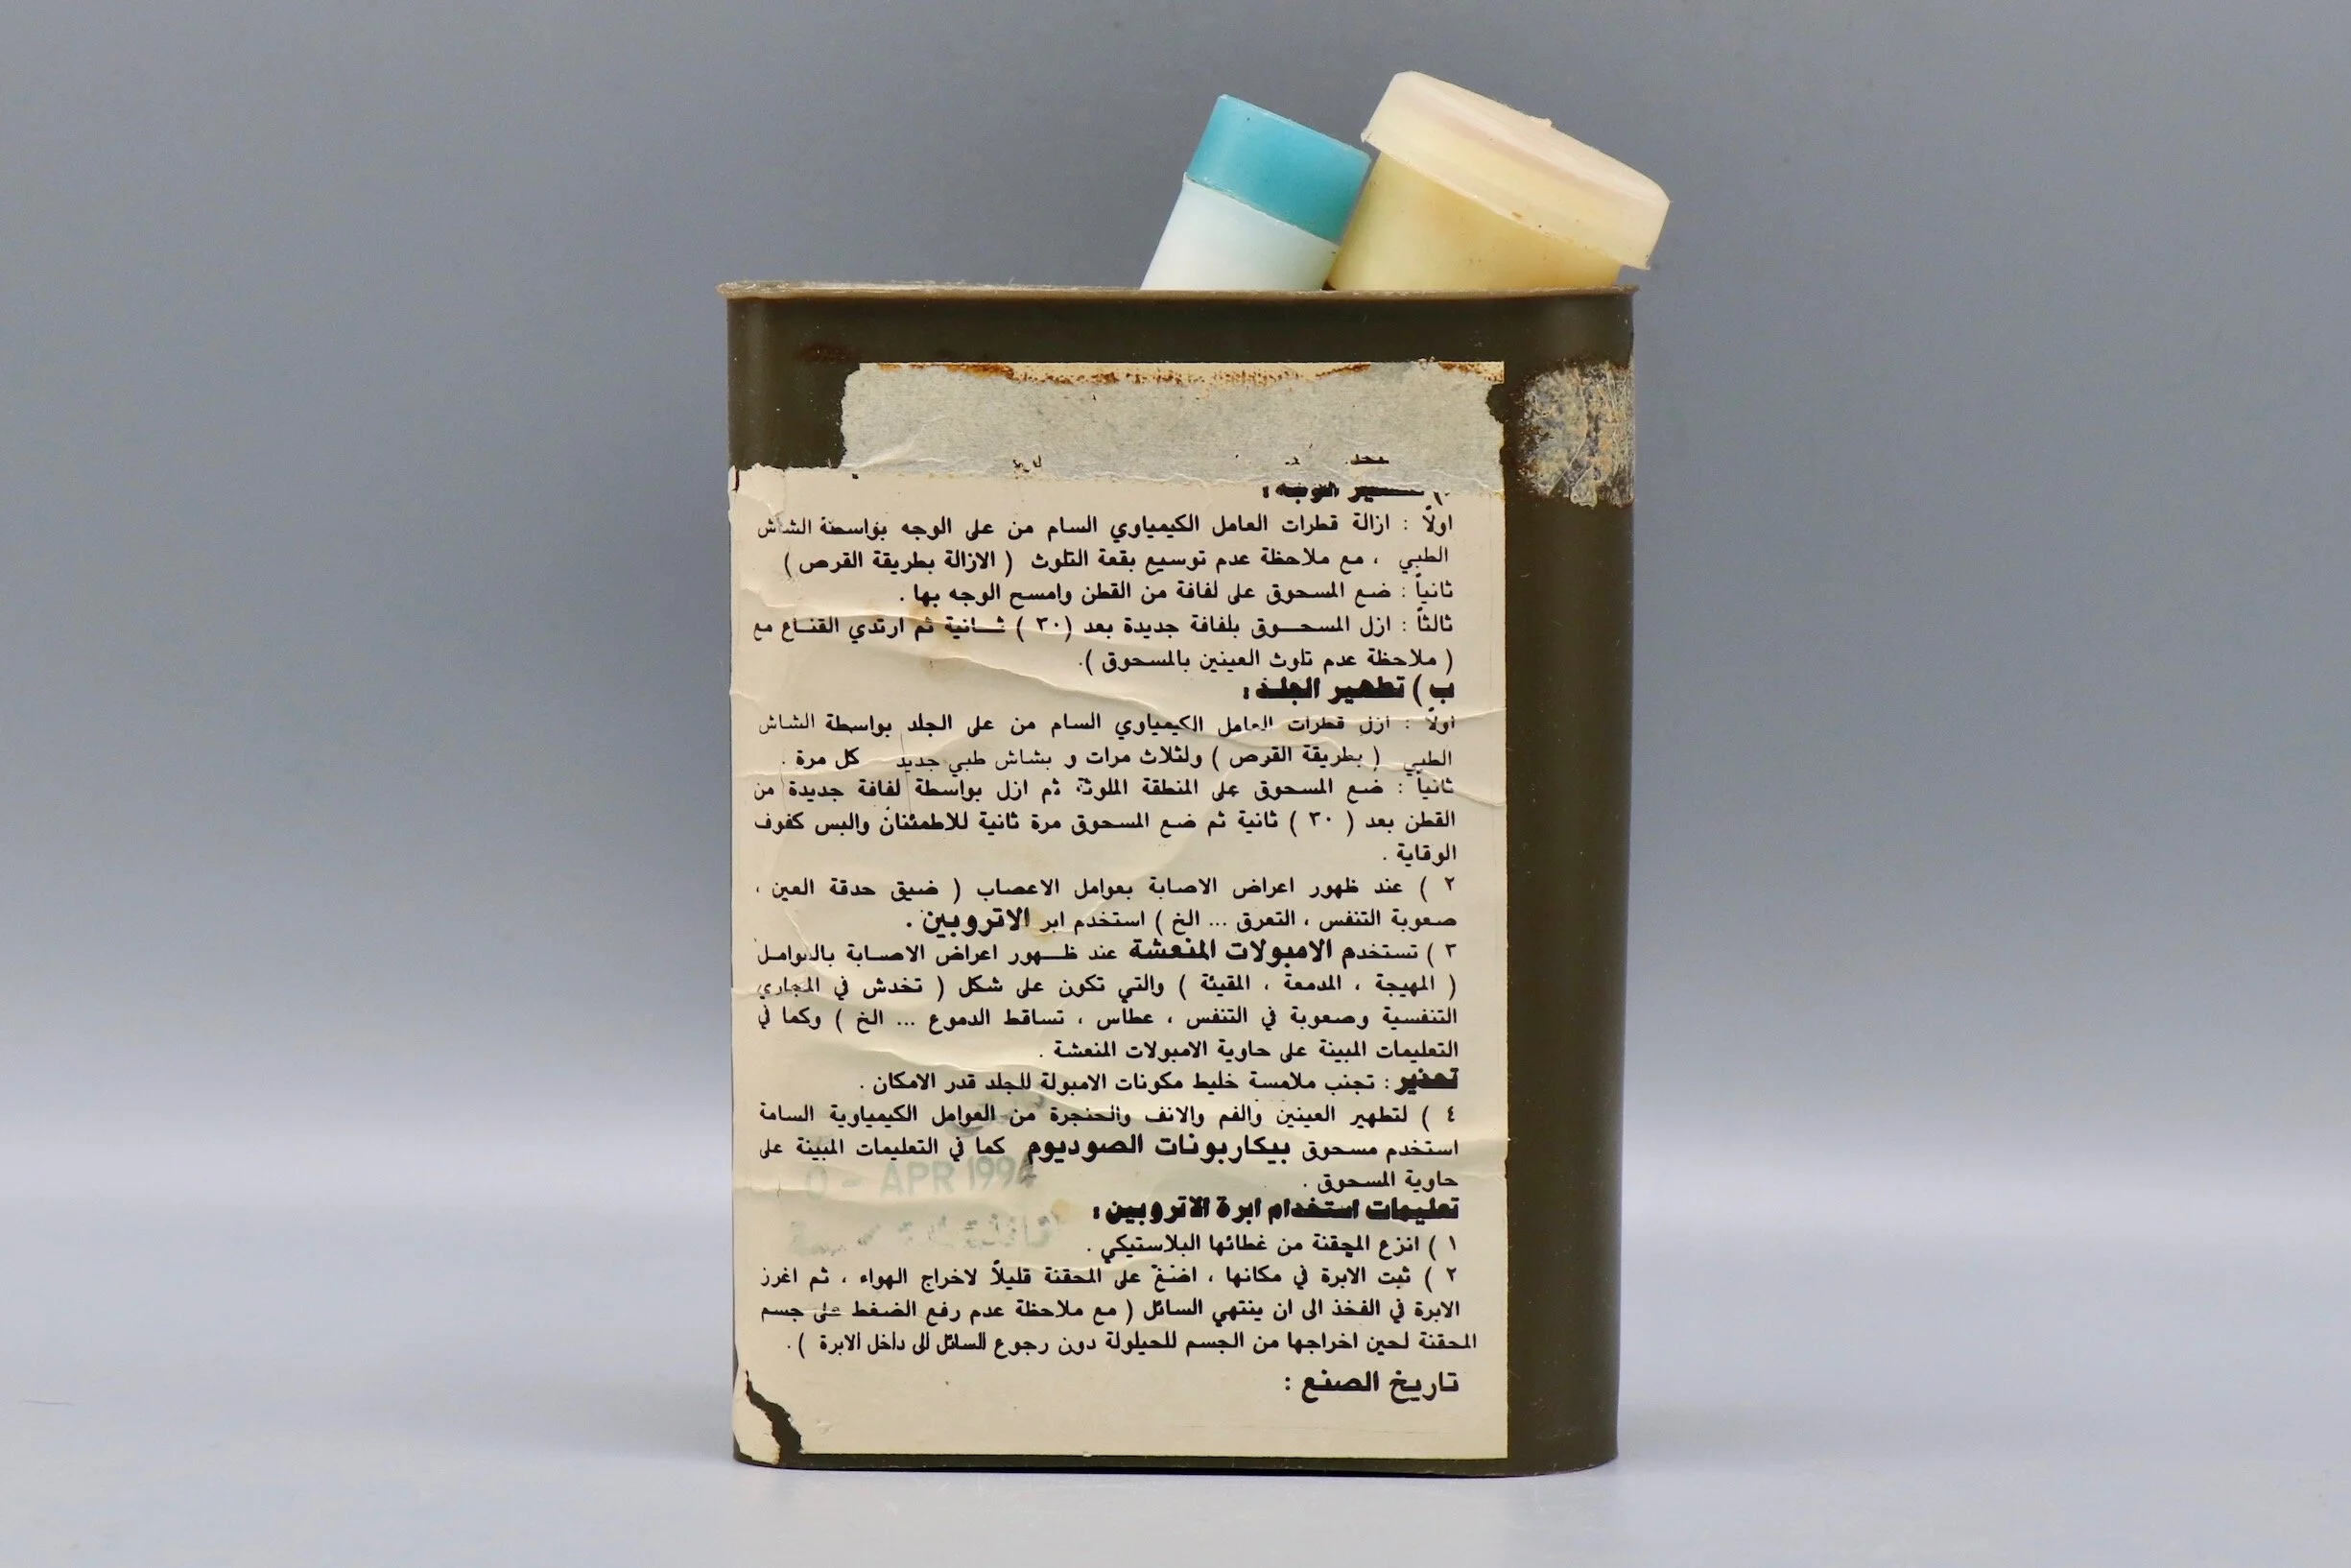 اولاً : ازالة قطرات العامل الكيمياوي السام من على الوجه بواسطة الشاش
الطبي ، مع ملاحظة عدم توسيع بقعة التلوث ( الازالة بطريقة القرص )
ثانياً : ضع المسحوق على لفافة من القطن وامسح الوجه بها .
ثالثاً : ازل المسحـــوق بلفافة جديدة بعد (٣٠ ) ثــانية ثم ارتدي القنـاع مع
( ملاحظة عدم تلوث العينين بالمسحوق ).
ب ) تطهير الجلد :
اولاً : ازل قطرات العامل الكيمياوي السام من على الجلد بواسطة الشاش
الطبي ( بطريقة القرص ) ولثلاث مرات و بشاش طبي جديد كل مرة .
ثانياً : ضع المسحوق على المنطقة الملوثة ثم ازل بواسطة لفافة جديدة من
القطن بعد ( ٣٠ ) ثانية ثم ضع المسحوق مرة ثانية للاطمئنان والبس كفوف
الوقاية .
٢ ) عند ظهور اعراض الاصابة بعوامل الاعصاب ( ضيق حدقة العين ،
صعوبة التنفس ، التعرق ... الخ ) استخدم ابر الاتروبين .
٣ ) تستخدم الامبولات المنعشة عند ظــهور اعراض الاصـابة بالعوامـل
( المهيجة ، المدمعة ، المقيئة ) والتي تكون على شكل ( تخدش في المجاري
التنفسية وصعوبة في التنفس ، عطاس ، تساقط الدموع ... الخ ) وكما في
التعليمات المبينة على حاوية الامبولات المنعشة .
تحذير : تجنب ملامسة خليط مكونات الامبولة للجلد قدر الامكان .
٤ ) لتطهير العينين والفم والانف والحنجرة من العوامل الكيمياوية السامة
استخدم مسحوق بيكاربونات الصوديوم كما في التعليمات المبينة على
حاوية المسحوق .
0 - APR 1994
تعليمات استخدام ابرة الاتروبين :
١ ) انزع المحقنة من غطائها البلاستيكي .
٢ ) ثبت الابرة في مكانها ، اضغط على المحقنة قليلاً لاخراج الهواء ، ثم اغرز
الابرة في الفخذ الى ان ينتهي السائل ( مع ملاحظة عدم رفع الضغط على جسم
المحقنة لحين اخراجها من الجسم للحيلولة دون رجوع السائل الى داخل الابرة ) .
تاريخ الصنع :